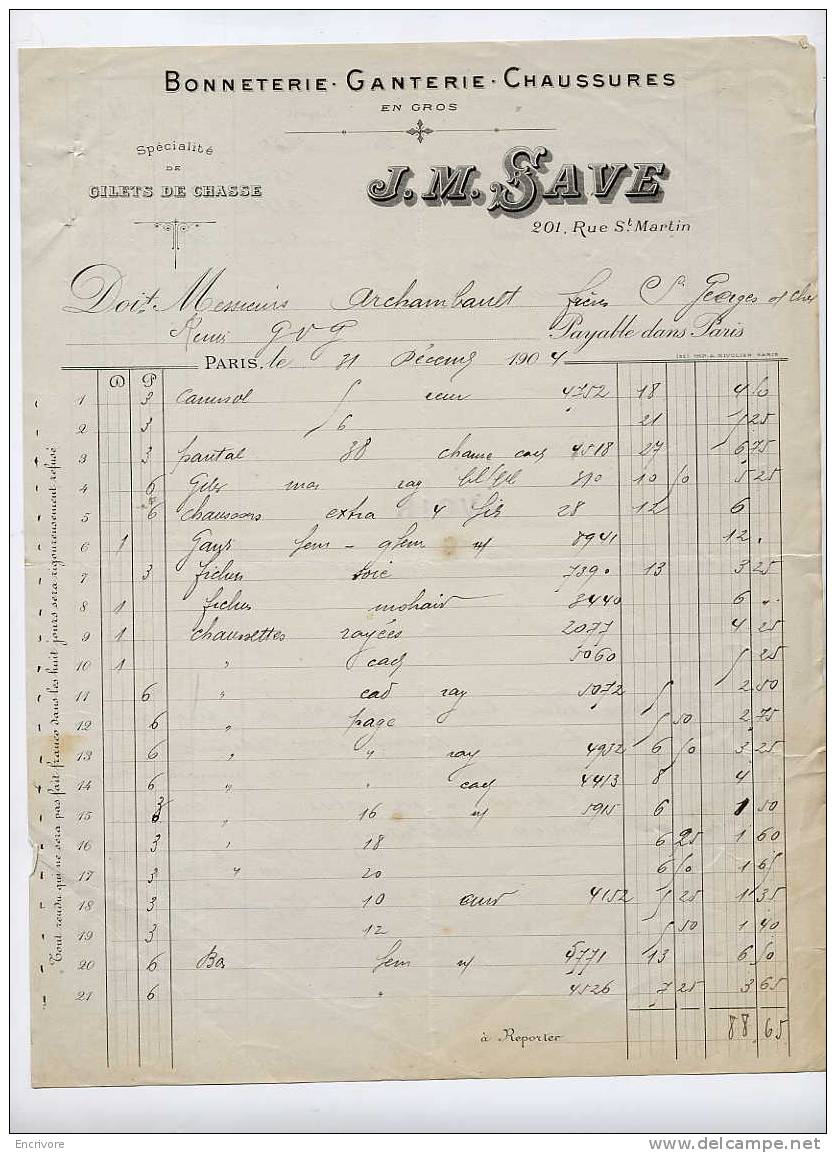 BONNETERIE · GANTERIE · CHAUSSURES
EN GROS
Spécialité
DE
GILETS DE CHASSE
J. M. SAVE
201, Rue St. Martin
Doit, Messieurs Archambault frères St Georges s/ Cher
Remis G V G Payable dans Paris
PARIS, le 31 Décemb 1904
IMP. A. RIVOLIER PARIS
D P
1 3 6 4752 18 4 50
2 3 6 21 5 25
3 3 pantal 38 4518 27 6 75
4 6 Gilet ray fil 310 10 50 5 25
5 6 chaussons extra 4 fils 28 12 6
6 1 Gants 8941 12 "
7 3 fichus soie 7390 13 3 25
8 1 fichus mohair 8440 6 "
9 1 chaussettes rayées 2077 4 25
10 1 " cad 5060 5 25
11 6 " cad ray 5072 5 2 50
12 6 " page 5 50 2 75
13 6 " " ray 4952 6 50 3 25
14 6 " " cad 4413 8 4
15 3 " 16 5915 6 1 50
16 3 " 18 6 25 1 60
17 3 " 20 6 50 1 65
18 3 10 4152 5 25 1 35
19 3 12 5 50 1 40
20 6 Bas fem 5771 13 6 50
21 6 " 4526 7 25 3 65
à Reporter 88.65
Tout rendu qui ne sera pas fait franco dans les huit jours sera rigoureusement refusé
Encrivore
www.delcampe.net